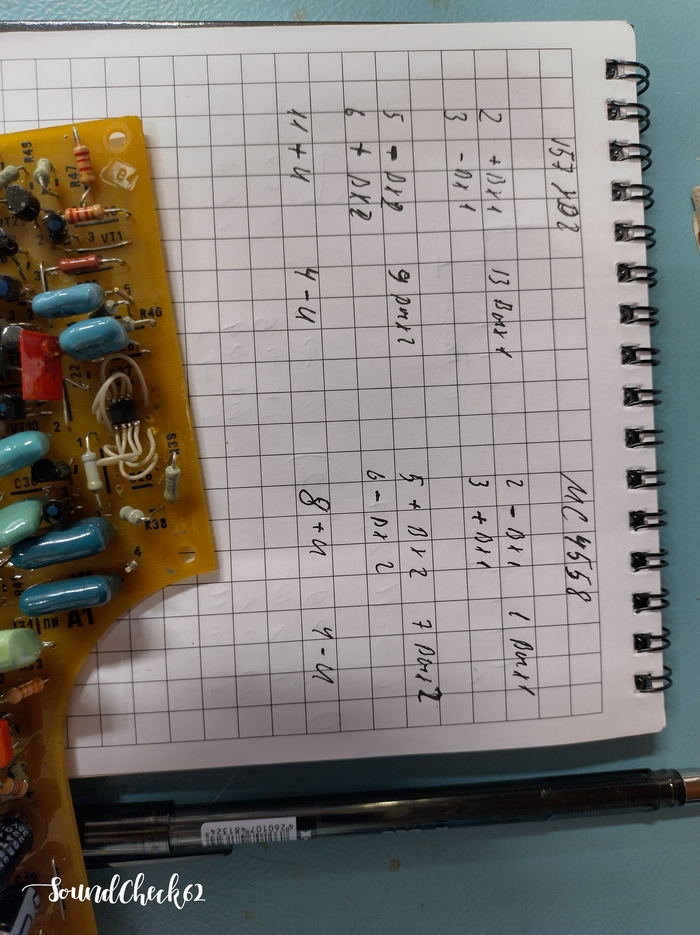 157УД2
2 +Вх1 13 Вых1
3 -Вх1
5 -Вх2 9 Вых2
6 +Вх2
11 +U 4 -U
МС4558
2 -Вх1 1 Вых1
3 +Вх1
5 +Вх2 7 Вых2
6 -Вх2
8 +U 4 -U
R47
VT1
2
3
R46
R39
R38
4
A1
ПИ
SoundCheck62